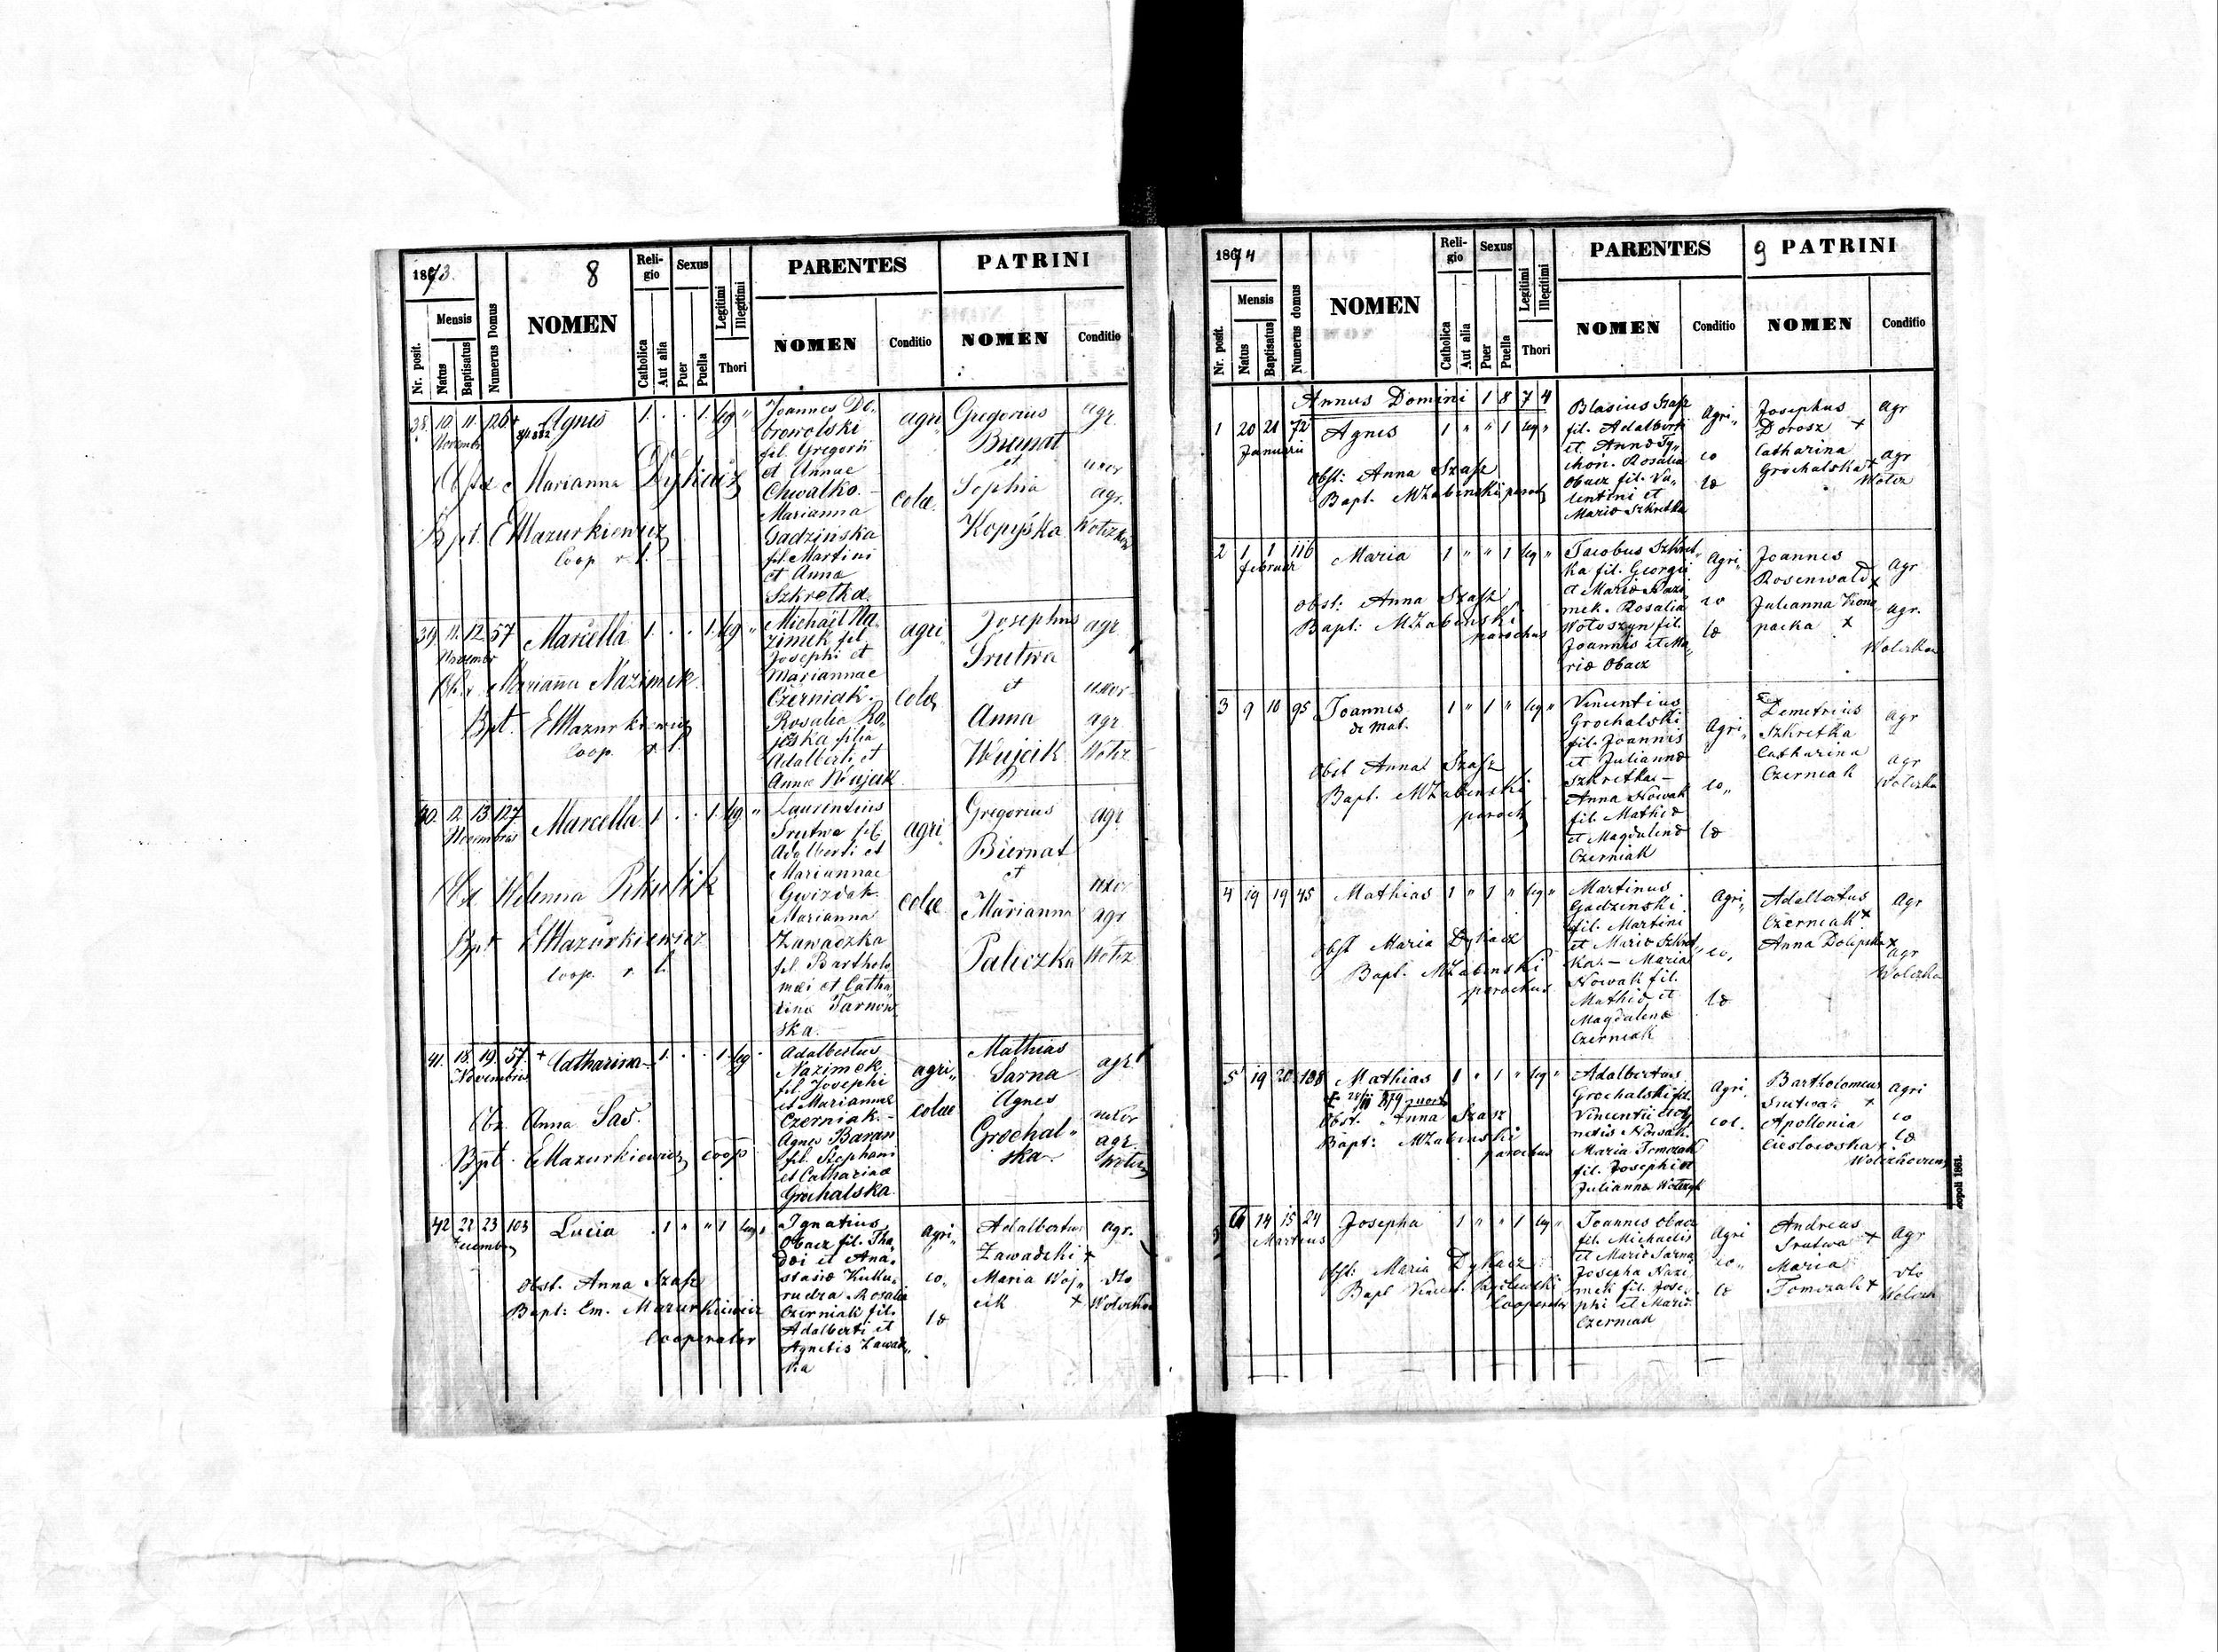 1873.
8
Nr. posit.
Mensis
Natus
Baptisatus
Numerus Domus
NOMEN
Reli-
gio
Catholica
Aut alia
Sexus
Puer
Puella
Legitimi
Illegitimi
Thori
PARENTES
NOMEN
Conditio
PATRINI
NOMEN
Conditio
38. 10. 11. 126 + Agnes 1. . . 1. leg "
Novembr
Marianna Dykacz
Bpt. E Mazurkiewicz
Coop r. l.
Joannes Do-
browolski
fil. Gregorii
et Annae
Chwalko. -
Marianna
Gadzińska
fil. Martini
et Anna
Szkretka.
agri
colae.
Gregorius
Biernat
et
Sophia
Kopyska
agr.
uxor
agr.
39. 11. 12. 57 Marcella 1. . . 1. leg "
Novembr
Marianna Nazimek
Bpt. E Mazurkiewicz
Coop. r. l.
Michaël Na-
zimek fil.
Josephi et
Mariannae
Czerniak.-
Rosalia
filia
Adalberti et
Anna Wujcik
agri
colae
Josephus
Srutwa
et
Anna
Wujcik
agr
uxor
agr
Wołcz
40. 12. 13. 127 Marcella 1. . . 1. leg "
Novembris
Helenna
Bpt E Mazurkiewicz
Coop. r. l.
Laurentius
Srutwa fil.
Adalberti et
Mariannae
Gwizdak
Marianna
Zawadzka
fil. Bartholo
mæi et Catha
rina Tarnow
ska.
agri
colae
Gregorius
Biernat
et
Marianna
Paliczka
agr.
uxor
agr
Wołcz
41. 18. 19. 57. + Catharina 1. . . 1. leg .
Novembris
Obs. Anna Sas.
Bpt. E Mazurkiewicz coop
Adalbertus
Nazimek
fil Josephi
et Mariannae
Czerniak.-
Agnes Baran
fil. Stephani
et Catharinae
Grochalska
agri"
colae
Mathias
Sarna
Agnes
Grochal"
ska
agr
uxor
agr.
Wołcz
42 22 23 103 Lucia 1 " " 1 leg "
Obst. Anna Szasz
Bapt: Em. Mazurkiewicz
Cooperator
Ignatius
Obacz fil. Tha-
dei et Ana-
stasiae Kuku-
rudza Rosalia
Czerniak fil.
Adalberti et
Agnetis Zawadz"
ka
agri"
co"
lae
Adalbertus
Zawadzki +
Maria Woj"
cik +
agr.
dto
Wołczka
1874
Nr. posit.
Mensis
Natus
Baptisatus
Numerus domus
NOMEN
Reli-
gio
Catholica
Aut alia
Sexus
Puer
Puella
Legitimi
Illegitimi
Thori
PARENTES
NOMEN
Conditio
9 PATRINI
NOMEN
Conditio
Annus Domini 1874
1 20 21 72 Agnes 1 " " 1 leg "
Januarii
Obst: Anna Szasz
Bapt. MŻabinski paroch
Blasius Szasz
fil. Adalberti
et Annae Ty"
chon. Rosalia
Obacz fil. Va-
lentini et
Mariae Szkretka
agri"
co
lae
Josephus
Dorosz +
Catharina
Grochalska +
agr
agr
Wołcz
2 1 1 116 Maria 1 " " 1 leg "
Februar
Obst: Anna Szasz
Bapt: MŻabinski
parochus
Jacobus Szkret"
ka fil. Georgii
et Mariae Nazi
mek. Rosalia
Wołoszyn fil.
Joannis et Ma"
riae Obacz
agri"
co
lae
Joannes
Rosenwald +
Julianna
packa +
agr
agr.
Wołczka
3 9 10 95 Joannes 1 " 1 " leg "
de Mat.
Obst Anna Szasz
Bapt. MŻabinski
paroch
Vincentius
Grochalski
fil. Joannis
et Juliannae
Szkretka -
Anna Nowak
fil. Mathiae
et Magdalenae
Czerniak
agri"
co"
lae
Demetrius
Szkretka
Catharina
Czerniak
agr
agr
Wołczka
4 19 19 45 Mathias 1 " 1 " leg "
Obst Maria Dykacz
Bapt. MŻabinski
parochus
Martinus
Gadzinski
fil. Martini
et Mariae Szkret"
ka. - Maria
Nowak fil.
Mathiae et
Magdalenae
Czerniak
agri"
co"
lae
Adalbertus
Czerniak +
Anna +
agr
agr
Wołczka
5 19 20 108 Mathias 1 " 1 " leg "
Obst. Anna Szasz
Bapt: MŻabinski
parochus
Adalbertus
Grochalski fil.
Vincentii et
Nowak.
Maria Tomczak
fil. Josephi et
Julianna
agri.
col.
Bartholomeus
Srutwa +
Apollonia
Cieslowska +
agri
co
lae
6 14 15 24 Josepha 1 " " 1 leg "
Martius
Obst: Maria Dykacz
Cooperator
Joannes Obacz
fil. Michaelis
et Mariae Sarna
Josepha Nazi
mek fil. Jose-
phi et Mariae
Czerniak
agri
co"
lae
Andreas
Srutwa +
Maria
Tomczak +
agr
dto
Wołczk